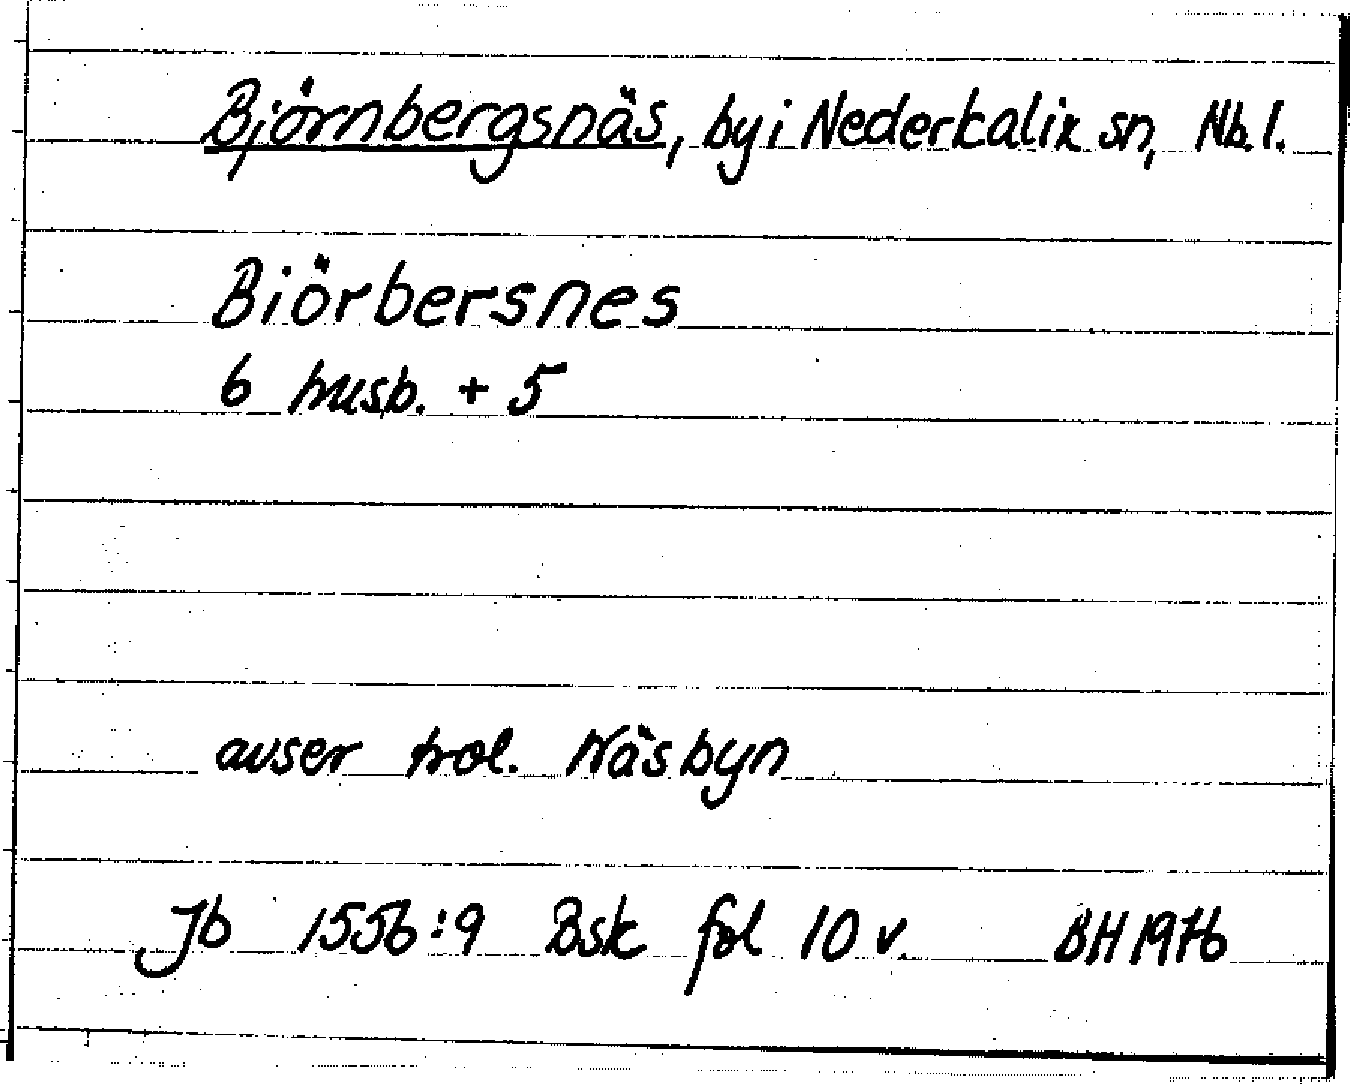 Björnbergsnäs, by i Nederkalix sn, Nb. l.
Biörbersnes
6 husb. + 5
avser trol. Näsbyn
Jb 1556:9 Bsk fol 10 v. BH 1976